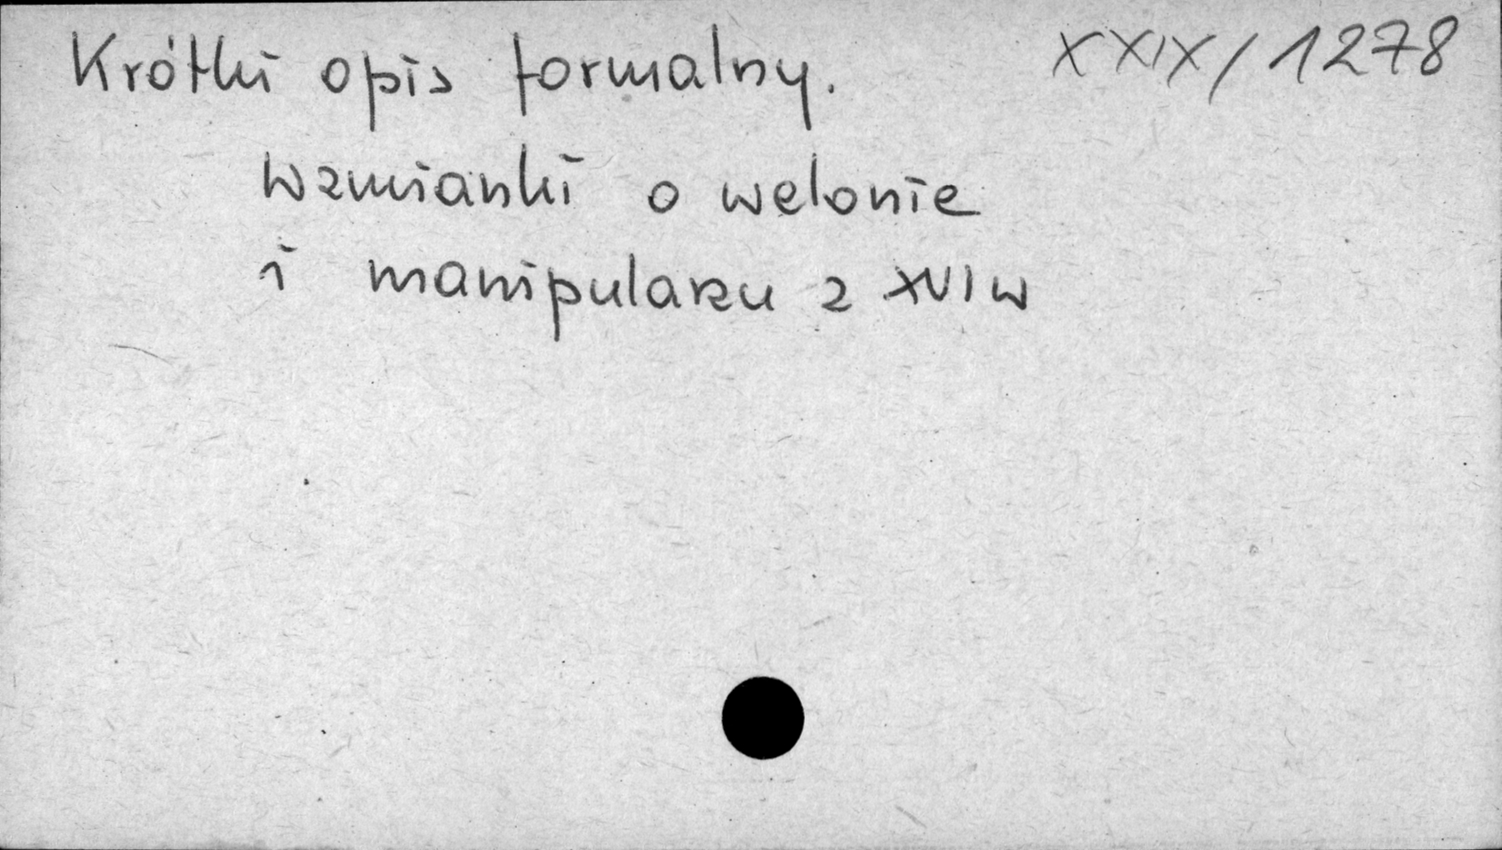 Krótki opis formalny. XXIX/1278
wzmianki o welonie
i manipularzu z XVI w